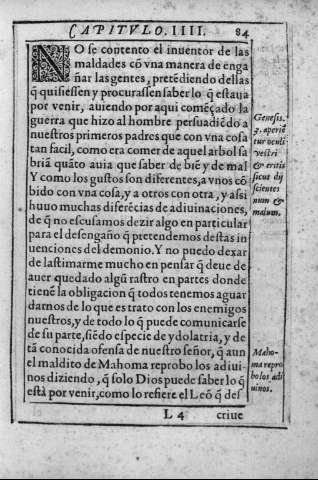 CAPITVLO. IIII. 84
NO se contento el inuentor de las
maldades cõ vna manera de enga
ñar las gentes, pretẽdiendo dellas
q̃ quisiessen y procurassen saber lo q̃ estaua
por venir, auiendo por aqui comẽçado la
guerra que hizo al hombre persuadiẽdo a
nuestros primeros padres que con vna cosa
tan facil, como era comer de aquel arbol sa
briã quãto auia que saber de biẽ y de mal
Y como los gustos son diferentes, a vnos cõ
bido con vna cosa, y a otros con otra, y assi
huuo muchas diferẽcias de adiuinaciones,
de q̃ no escusamos dezir algo en particular
para el desengaño q̃ pretendemos destas in
uenciones del demonio. Y no puedo dexar
de lastimarme mucho en pensar q̃ deue de
auer quedado algũ rastro en partes donde
tienẽ la obligacion q̃ todos tenemos aguar
darnos de lo que es trato con los enemigos
nuestros, y de todo lo q̃ puede comunicarse
de su parte, siẽdo especie de ydolatria, y de
tã conocida ofensa de nuestro señor, q̃ aun
el maldito de Mahoma reprobo los adiui
nos diziendo, q̃ solo Dios puede saber lo q̃
està por venir, como lo refiere el Leõ q̃ des
L 4 criue
Genesis.
3. aperiẽ
tur oculi
vestri
& eritis
sicut dij
scientes
num &
malum.
Maho-
ma repro
bo los adi
uinos.